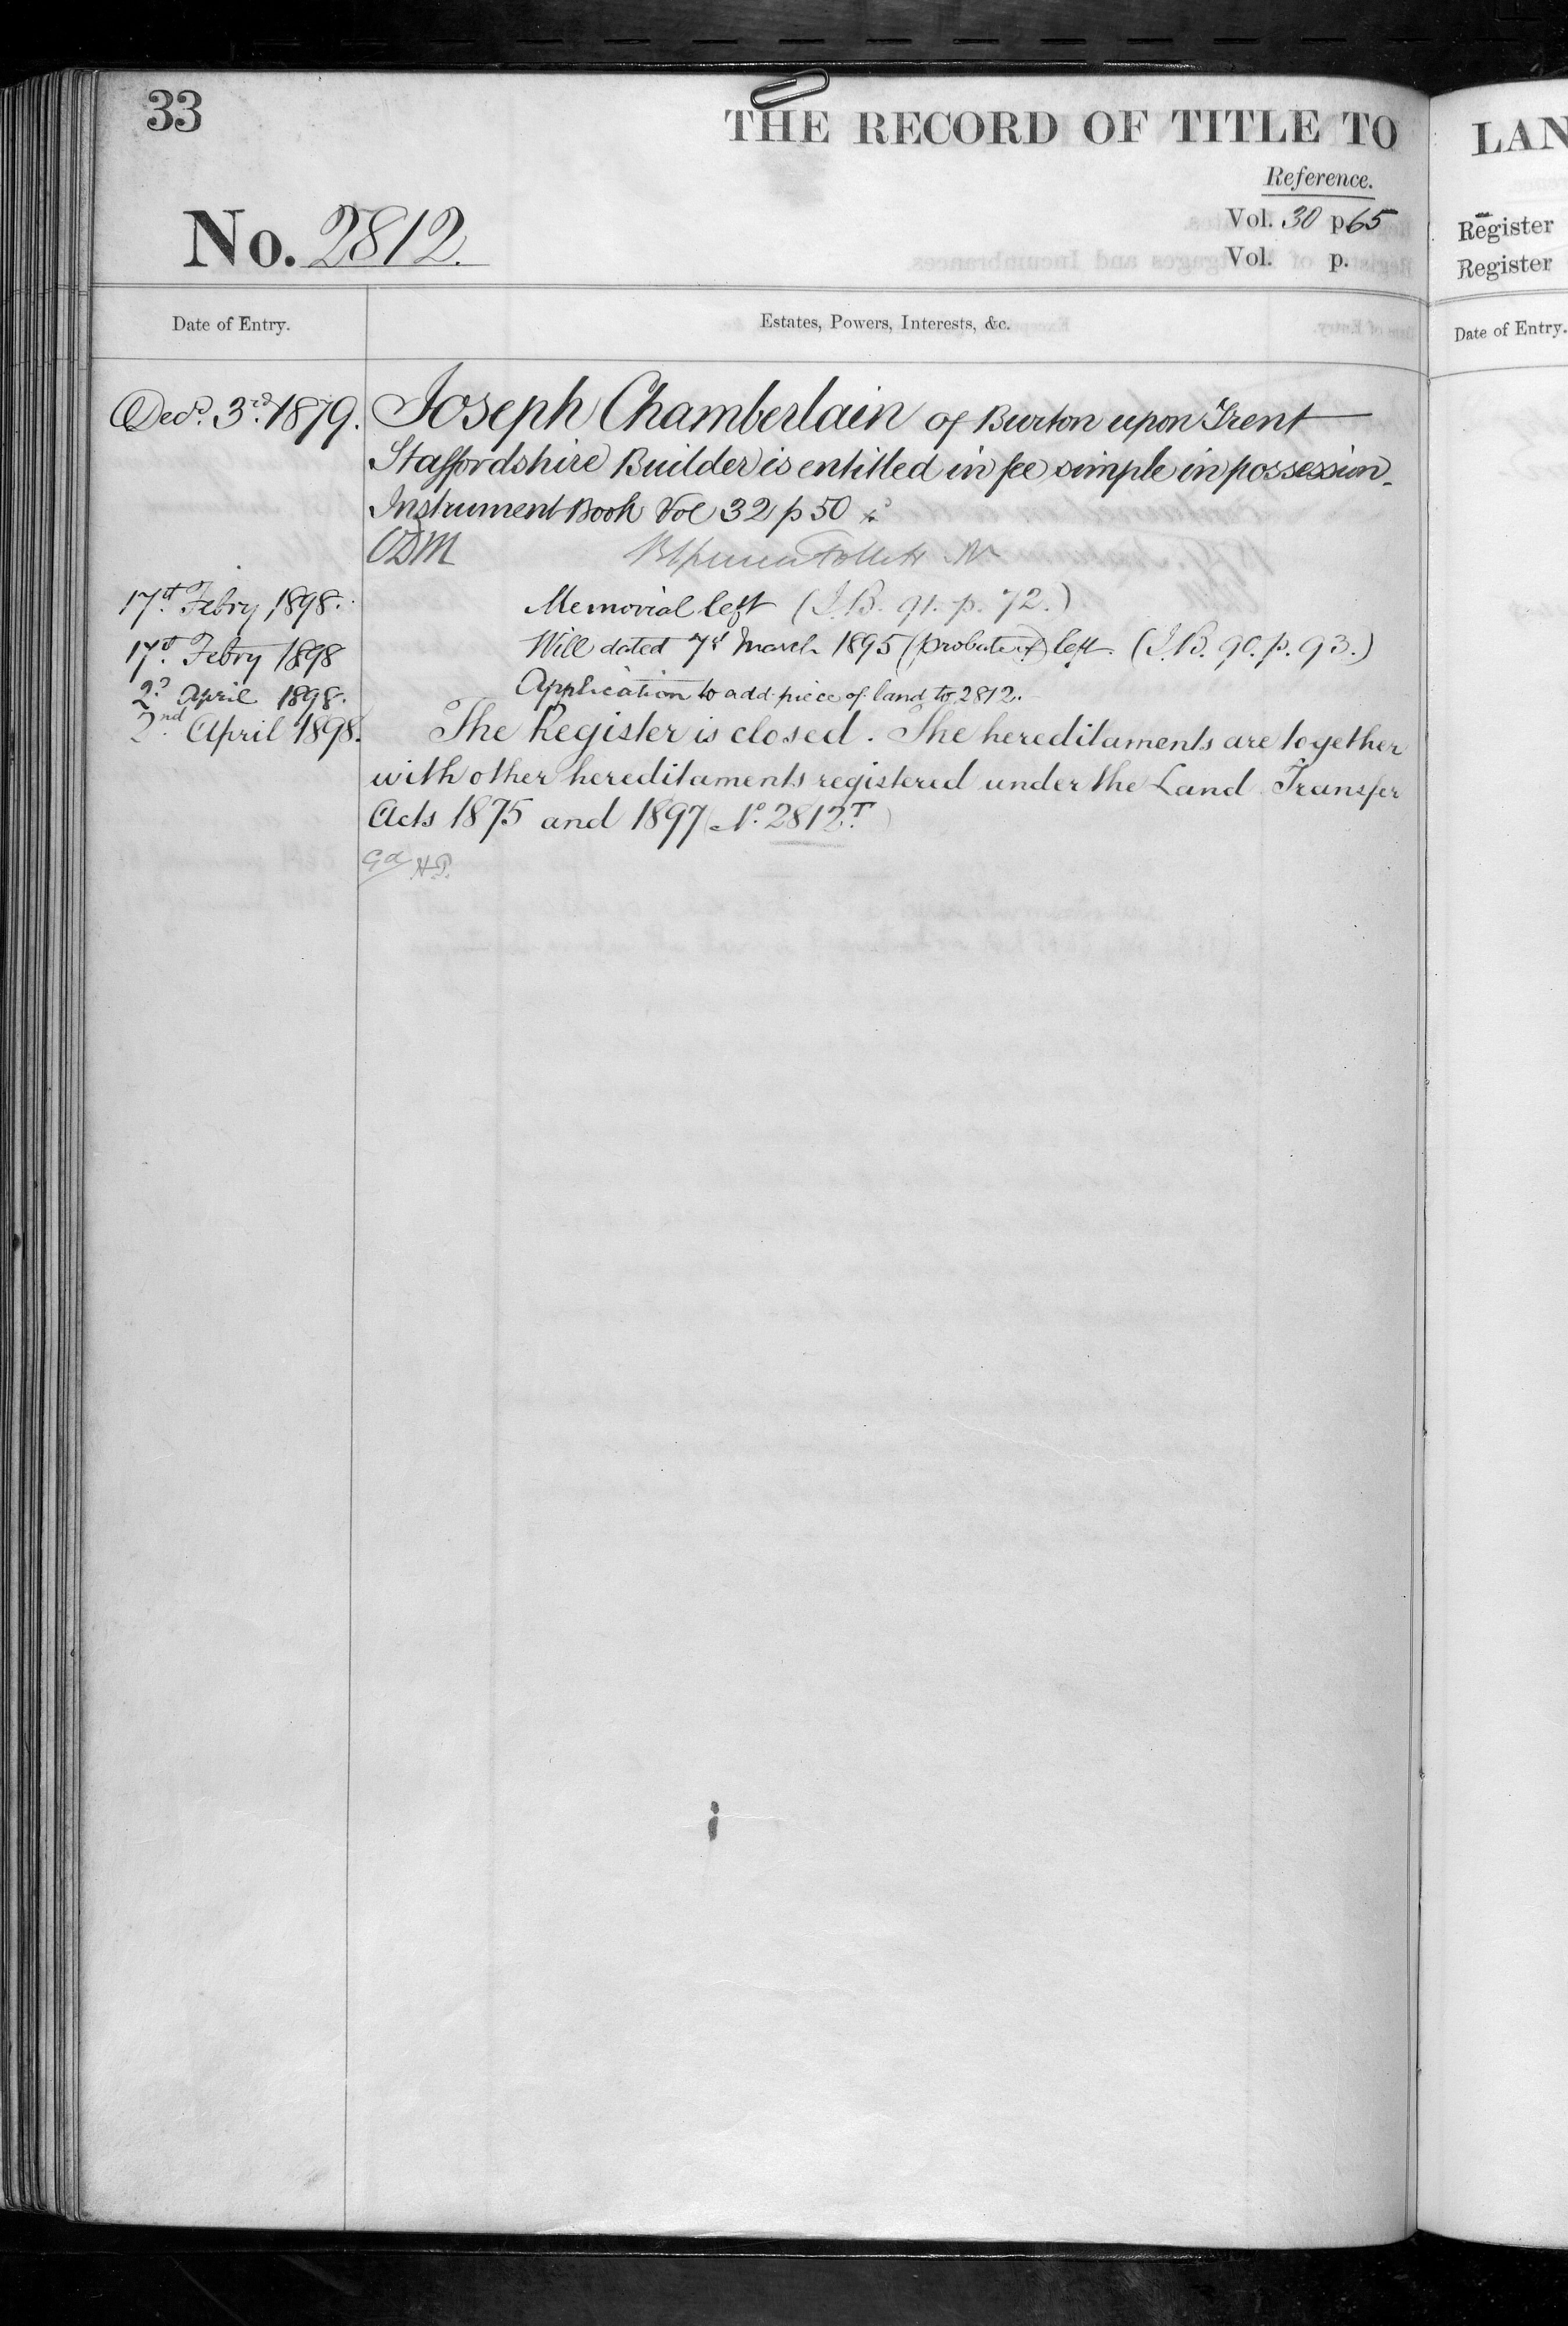 33
THE RECORD OF TITLE TO
Reference.
No. 2812.
Vol. 30 p. 65
Vol. p.
Date of Entry.
Estates, Powers, Interests, &c.
Decr. 3rd. 1879. Joseph Chamberlain of Burton upon Trent
Staffordshire Builder is entitled in fee simple in possession.
Instrument Book Vol 32 p 50
ODM
17th Febry 1898. Memorial left (I.B. 91. p. 72.)
17th Febry 1898 Will dated 7th March 1895 (probate of) left. (I.B. 90. p. 93.)
2d April 1898. Application to add piece of land to 2812.
2nd April 1898. The Register is closed. The hereditaments are together
with other hereditaments registered under the Land Transfer
Acts 1875 and 1897 (No. 2812T.)
H.P.
LAN
Register
Register
Date of Entry.